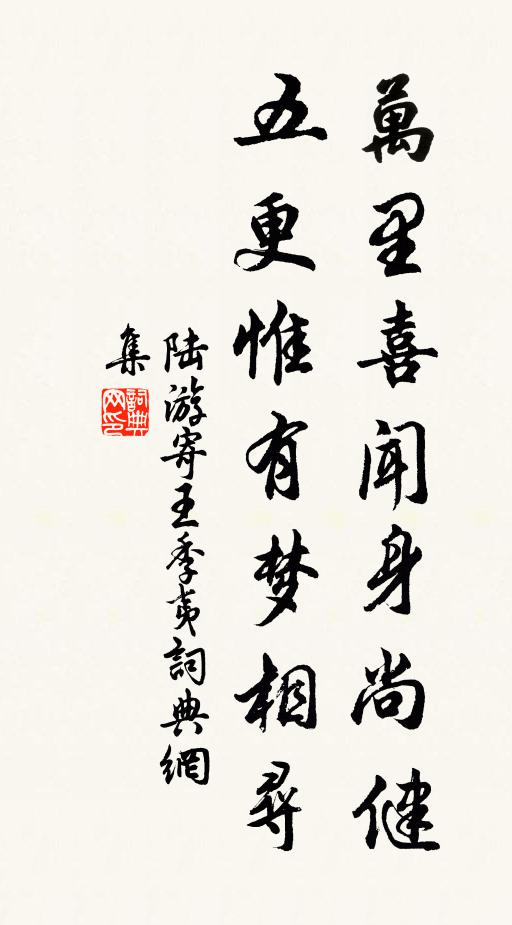 萬里喜聞身尚健
五更惟有梦相尋
陆游寄王季夷詞典網
集
詞典
网印